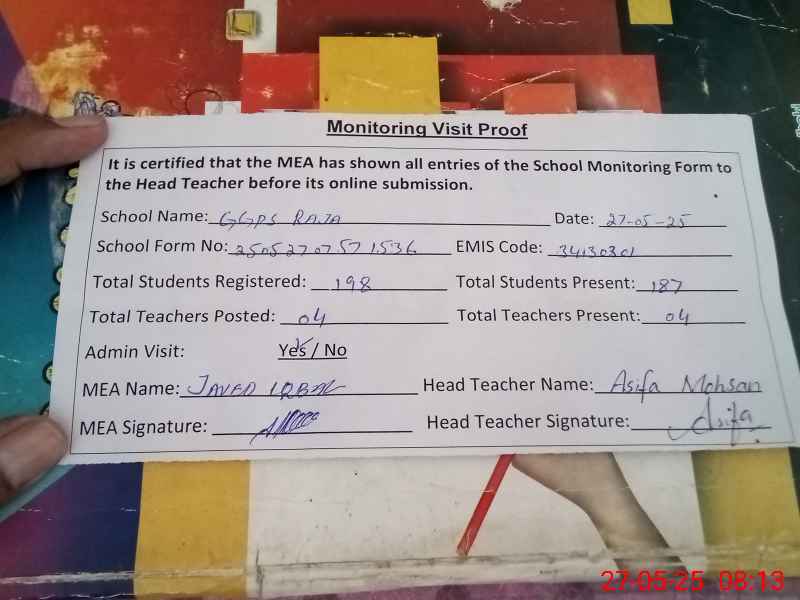 Monitoring Visit Proof
It is certified that the MEA has shown all entries of the School Monitoring Form to
the Head Teacher before its online submission.
School Name: GGPS RAJA Date: 27-05-25
School Form No: 2505270757 1536 EMIS Code: 34130301
Total Students Registered: 198 Total Students Present: 187
Total Teachers Posted: 04 Total Teachers Present: 04
Admin Visit: Yes / No
MEA Name: JAVED IQBAL Head Teacher Name: Asifa Mohsan
MEA Signature: Head Teacher Signature: Asifa
27-05-25 08:13